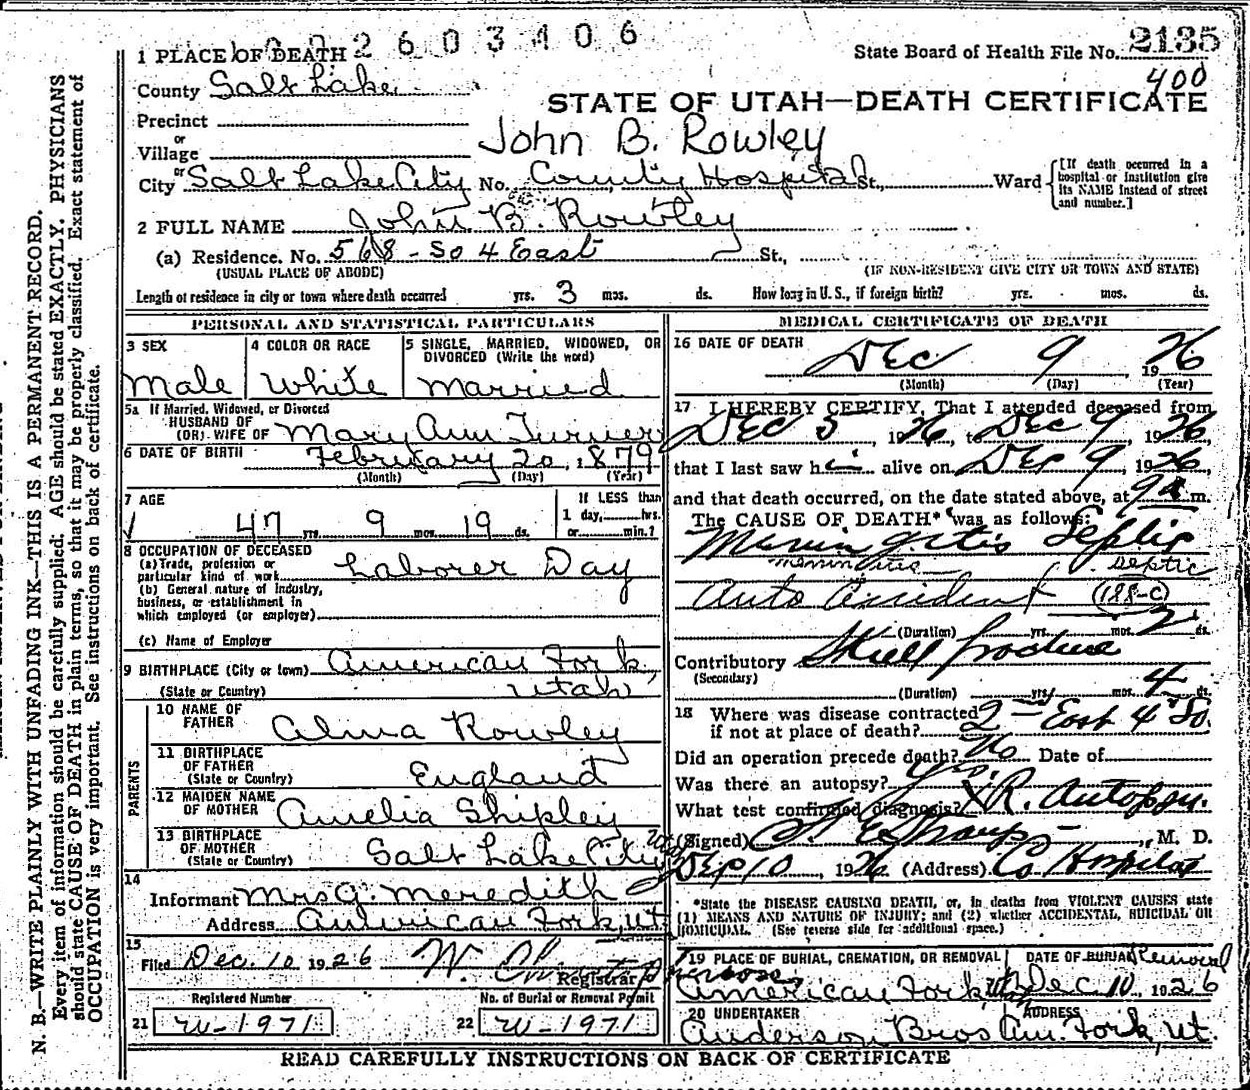 2603406
1 PLACE OF DEATH
State Board of Health File No. 2135
400
County Salt Lake
STATE OF UTAH—DEATH CERTIFICATE
Precinct
or
Village
John B. Rowley
or
City Salt Lake City No. County Hospital St., Ward
[If death occurred in a hospital or institution give its NAME instead of street and number.]
2 FULL NAME John B. Rowley
(a) Residence. No. 568 - So 4 East St.,
(USUAL PLACE OF ABODE)
(IF NON-RESIDENT GIVE CITY OR TOWN AND STATE)
Length of residence in city or town where death occurred yrs. 3 mos. ds. How long in U. S., if foreign birth? yrs. mos. ds.
PERSONAL AND STATISTICAL PARTICULARS
3 SEX
Male
4 COLOR OR RACE
White
5 SINGLE, MARRIED, WIDOWED, OR
DIVORCED (Write the word)
Married
5a If Married, Widowed, or Divorced
HUSBAND OF
(OR) WIFE OF Mary Ann Turner
6 DATE OF BIRTH February 20, 1879
(Month) (Day) (Year)
7 AGE
47 yrs. 9 mos. 19 ds.
If LESS than
1 day, hrs.
or min.?
8 OCCUPATION OF DECEASED
(a) Trade, profession or
particular kind of work Laborer Day
(b) General nature of industry,
business, or establishment in
which employed (or employer)
(c) Name of Employer
9 BIRTHPLACE (City or town) American Fork,
(State or Country) Utah
PARENTS
10 NAME OF
FATHER Alma Rowley
11 BIRTHPLACE
OF FATHER
(State or Country) England
12 MAIDEN NAME
OF MOTHER Amelia Shipley
13 BIRTHPLACE
OF MOTHER
(State or Country) Salt Lake City
14
Informant Mrs G. Meredith
Address American Fork, Ut.
15
Filed Dec. 10 1926 W.
Registrar
Registered Number
21 W-1971
No. of Burial or Removal Permit
22 W-1971
MEDICAL CERTIFICATE OF DEATH
16 DATE OF DEATH
Dec 9 1926
(Month) (Day) (Year)
17 I HEREBY CERTIFY, That I attended deceased from
Dec 5, 1926, to Dec 9, 1926,
that I last saw him alive on Dec 9, 1926,
and that death occurred, on the date stated above, at 9 a m.
The CAUSE OF DEATH* was as follows:
Meningitis Septic
Meningitis septic
Auto Accident (188-c)
(Duration) yrs. mos. 2 ds.
Contributory Skull fracture
(Secondary)
(Duration) yrs. mos. 4 ds.
18 Where was disease contracted
if not at place of death? 2 East 4 So.
Did an operation precede death? No Date of
Was there an autopsy? Yes.
What test confirmed diagnosis? X R. Autopsy.
(Signed) M. D.
Dec 10, 1926 (Address) Co Hospital
*State the DISEASE CAUSING DEATH, or, in deaths from VIOLENT CAUSES state
(1) MEANS AND NATURE OF INJURY; and (2) whether ACCIDENTAL, SUICIDAL OR
HOMICIDAL. (See reverse side for additional space.)
19 PLACE OF BURIAL, CREMATION, OR REMOVAL
American Fork
DATE OF BURIAL Removal
Dec 10, 1926
20 UNDERTAKER ADDRESS
Anderson Bros Am. Fork, Ut.
READ CAREFULLY INSTRUCTIONS ON BACK OF CERTIFICATE
N. B.—WRITE PLAINLY WITH UNFADING INK—THIS IS A PERMANENT RECORD.
Every item of information should be carefully supplied. AGE should be stated EXACTLY. PHYSICIANS
should state CAUSE OF DEATH in plain terms, so that it may be properly classified. Exact statement of
OCCUPATION is very important. See instructions on back of certificate.